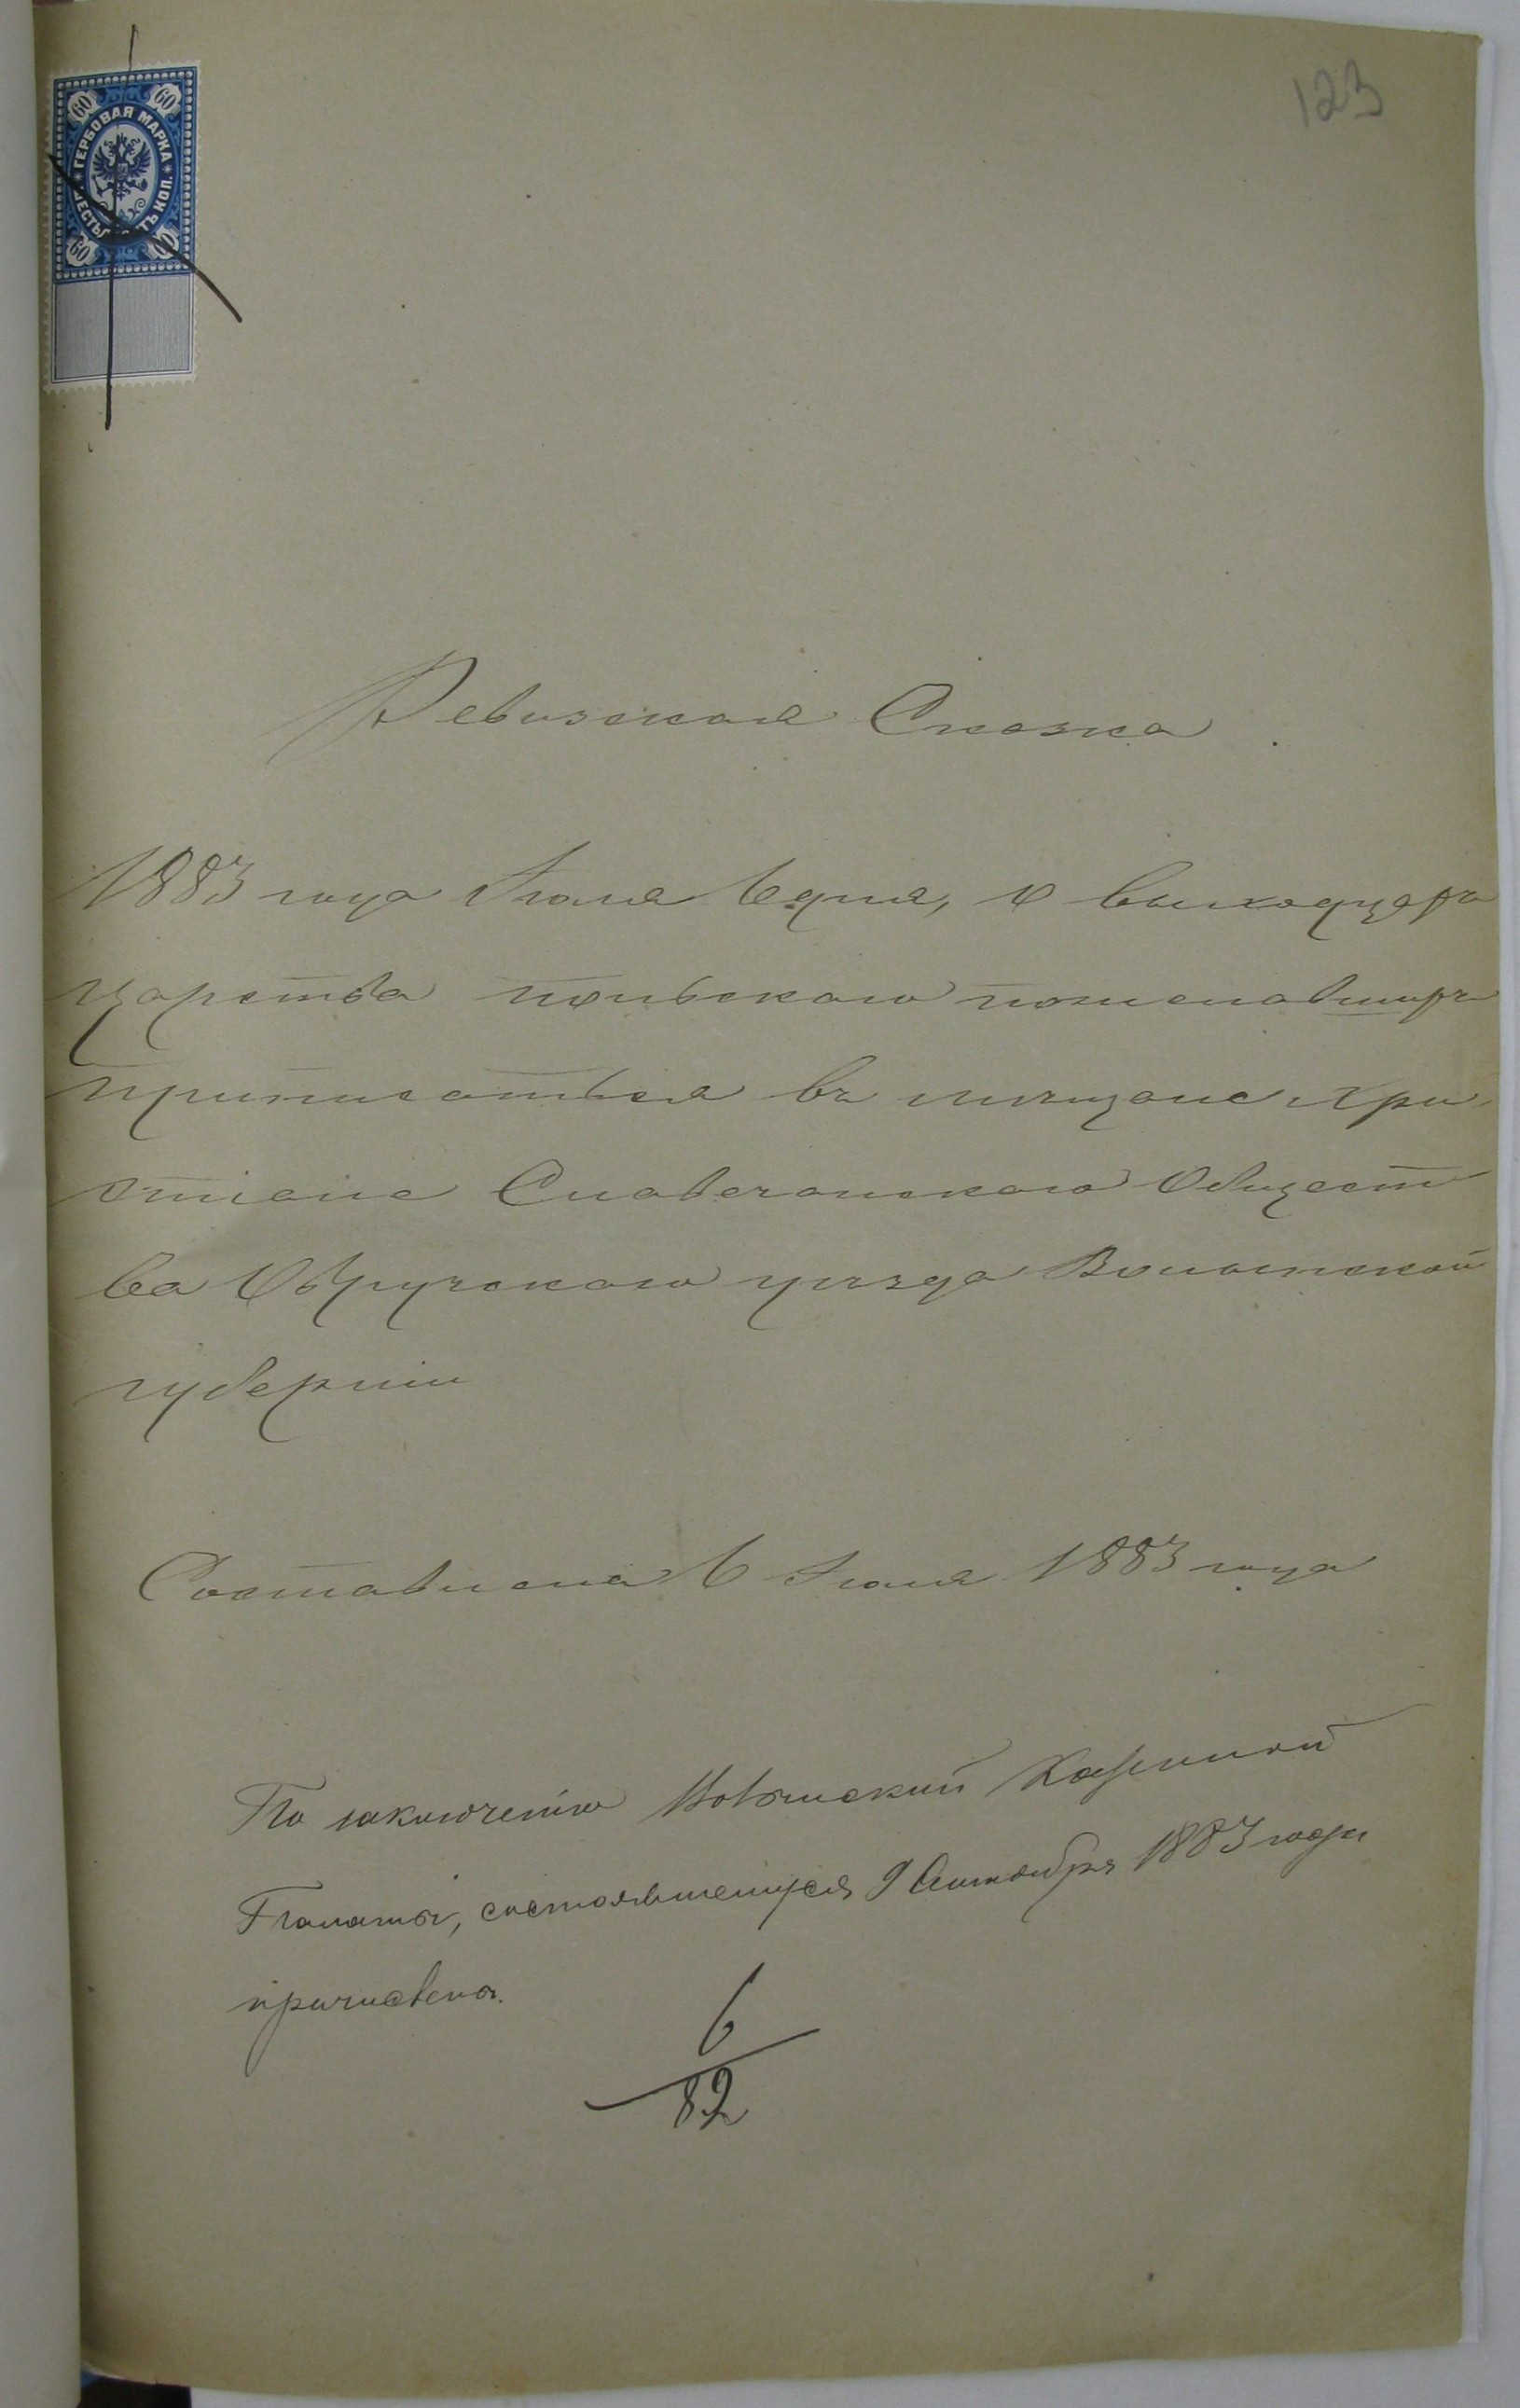 123
60 60
ГЕРБОВАЯ МАРКА
ШЕСТЬДЕСЯТЪ КОП.
60 60
Ревизская Сказка
1883 года Июля 6 дня, о выходцахъ
царства польскаго пожелавшихъ
приписаться въ мещане хри
стіане Славечанского Общест
ва Овручскаго уезда Волынской
губерніи
Составлена 6 Июля 1883 года
По заключенію Волынской Казенной
Палаты, состоявшемуся 9 Октября 1883 года
причислены.
6
82